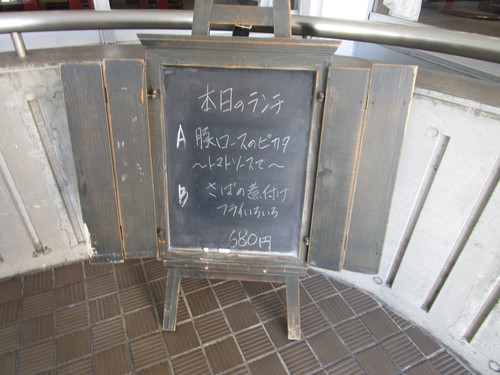 本日のランチ
A 豚ロースのピカタ
～トマトソースで～
B さばの煮付け
フライいろいろ
680円